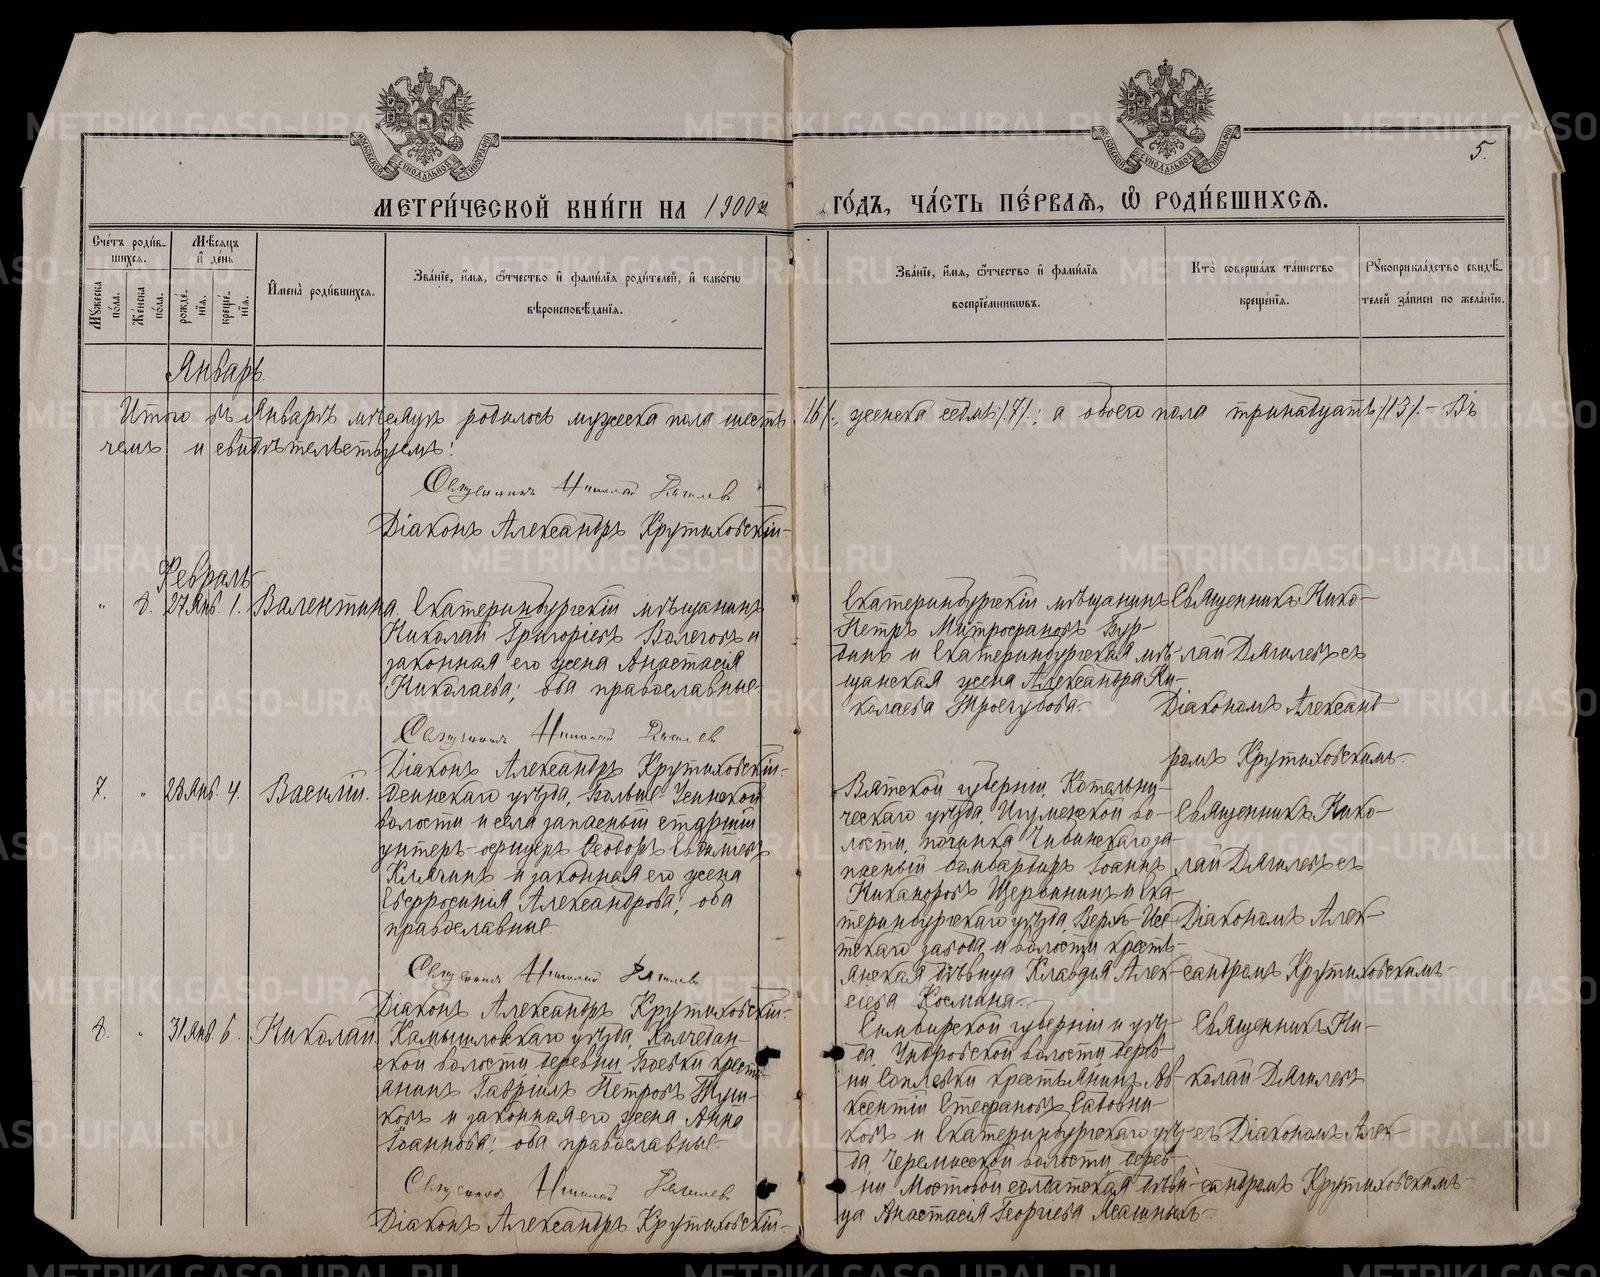 5.
МЕТРИ́ЧЕСКОЙ КНИ́ГИ НА 1900й ГО́ДЪ, ЧА́СТЬ ПЕ́РВАѦ, Ѡ҆ РОДИ́ВШИХСѦ.
Сче́тъ роди́в-
шихсѧ.
Мѣ́сѧцъ
и҆ де́нь
Мꙋ́жеска
по́ла.
Же́нска
по́ла.
рожде́-
нїѧ.
креще́-
нїѧ.
И҆мена̀ роди́вшихсѧ.
Зва́нїе, и҆́мѧ, ѻ҆́тчество и҆ фами́лїѧ роди́телей, и҆ како́гѡ
вѣроисповѣ́данїѧ.
Зва́нїе, и҆́мѧ, ѻ҆́тчество и҆ фами́лїѧ
воспрїе́мникѡвъ.
Кто̀ соверша́лъ та́инство
креще́нїѧ.
Рꙋкоприкла́дство свидѣ́-
телей за́писи по жела́нїю.
Январь.
Итого въ Январѣ мѣсяцѣ родилось мужеска пола шесть /6/., женска седмь /7/.; а обоего пола тринадцать /13/. – Въ
чемъ и свидѣтельствуемъ:
Священникъ Николай Дягилевъ
Діаконъ Александръ Крутиховскій
Февраль
" 8. 27 Янв. 1. Валентина. Екатеринбургскій мѣщанинъ
Николай Григоріевъ Волеговъ и
законная его жена Анастасія
Николаева; оба православные.
Священникъ Николай Дягилевъ
Діаконъ Александръ Крутиховскій
Екатеринбургскій мѣщанинъ
Петръ Митрофановъ Бур-
динъ и Екатеринбургская мѣ-
щанская жена Александра Ни-
колаева Троегубова.
Священникъ Нико-
лай Дягилевъ съ
Діакономъ Александ-
ромъ Крутиховскимъ.
7. " 28 Янв. 4. Василій.
Осинскаго уѣзда, Больше-Усинской
волости и села запасный старшій
унтеръ-офицеръ Ѳеодоръ
Клячинъ и законная его жена
Евфросинія Александрова; оба
православные.
Священникъ Николай Дягилевъ
Діаконъ Александръ Крутиховскій
Вятской губерніи, Котельни-
ческаго уѣзда, во-
лости, починка за-
пасный бомбардиръ Іоаннъ
Никаноровъ Щербининъ и Ека-
теринбургскаго уѣзда, Верх-Исет-
скаго завода и волости кресть-
янская дѣвица Клавдія Алек-
сѣева Космина.
Священникъ Нико-
лай Дягилевъ съ
Діакономъ Алек-
сандромъ Крутиховскимъ.
8. " 31 Янв. 6. Николай.
Камышловскаго уѣзда, Колчедан-
ской волости деревни Боевки кресть-
янинъ Гавріилъ Петровъ
и законная его жена Анна
Іоаннова; оба православные.
Священникъ Николай Дягилевъ
Діаконъ Александръ Крутиховскій
Симбирской губерніи и уѣз-
да, Ундоровской волости дерев-
ни крестьянинъ Ав-
ксентій Стефановъ Садовни-
ковъ и Екатеринбургскаго уѣз-
да, Черемисской волости дерев-
ни Мостовой солдатская дѣви-
ца Анастасія Георгіева
Священникъ Ни-
колай Дягилевъ
съ Діакономъ Алек-
сандромъ Крутиховскимъ.
METRIKI.GASO-URAL.RU